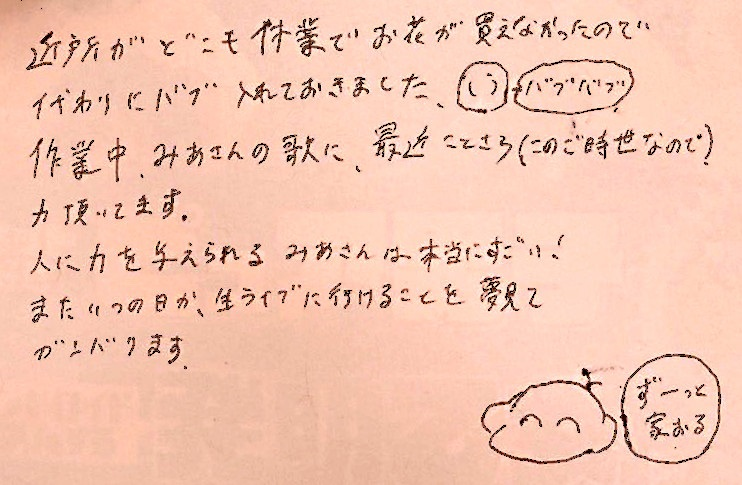 近所がどこも休業でお花が買えなかったので
代わりにバブ入れておきました、
バブバブ
作業中、みあさんの歌に、最近ことさら(このご時世なので)
力頂いてます。
人に力を与えられるみあさんは本当にすごい!
またいつの日か、生ライブに行けることを夢見て
ガンバります。
ずーっと
家おる